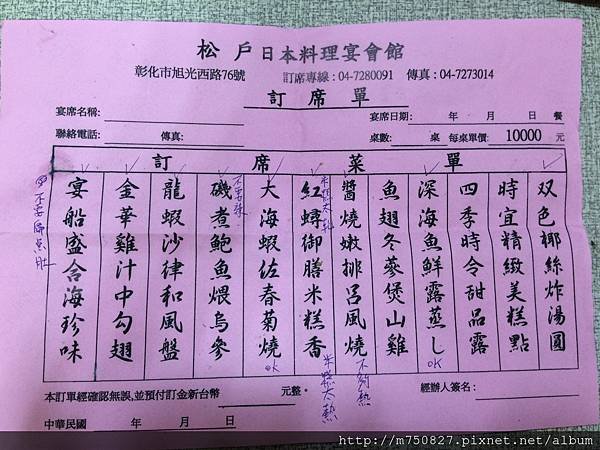 松戶日本料理宴會館
彰化市旭光西路76號 訂席專線:04-7280091 傳真:04-7273014
訂席單
宴席名稱: 宴席日期: 年 月 日 餐
聯絡電話: 傳真: 桌數: 桌 每桌單價: 10000 元
訂席菜單
双色椰絲炸湯圓
時宜精緻美糕點
四季時令甜品露
深海魚鮮露蒸し
OK
魚翅冬蔘煲山雞
醬燒嫩排呂風燒
不夠熱
紅蟳御膳米糕香
米糕太熱
大海蝦佐春菊燒
OK
磯煮鮑魚煨烏參
龍蝦沙律和風盤
金華雞汁中勾翅
宴船盛合海珍味
本訂單經確認無誤,並預付訂金新台幣 元整。 經辦人簽名:
中華民國 年 月 日
http://m750827.pixnet.net/album